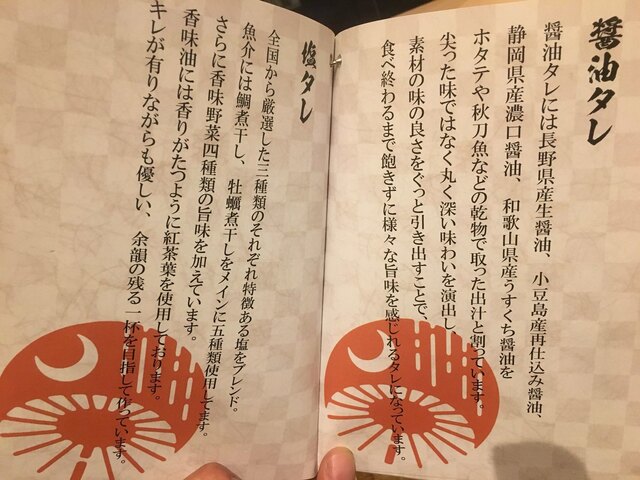 醤油タレ
醤油タレには長野県産生醤油、小豆島産再仕込み醤油、
静岡県産濃口醤油、和歌山県産うすくち醤油を
ホタテや秋刀魚などの乾物で取った出汁と割っています。
尖った味ではなく丸く深い味わいを演出し
素材の味の良さをぐっと引き出すことで、
食べ終わるまで飽きずに様々な旨味を感じれるタレになっています。
塩タレ
全国から厳選した三種類のそれぞれ特徴ある塩をブレンド。
魚介には鯛煮干し、牡蠣煮干しをメインに五種類使用してます。
さらに香味野菜四種類の旨味を加えています。
香味油には香りがたつように紅茶葉を使用しております。
キレが有りながらも優しい、余韻の残る一杯を目指して作っています。